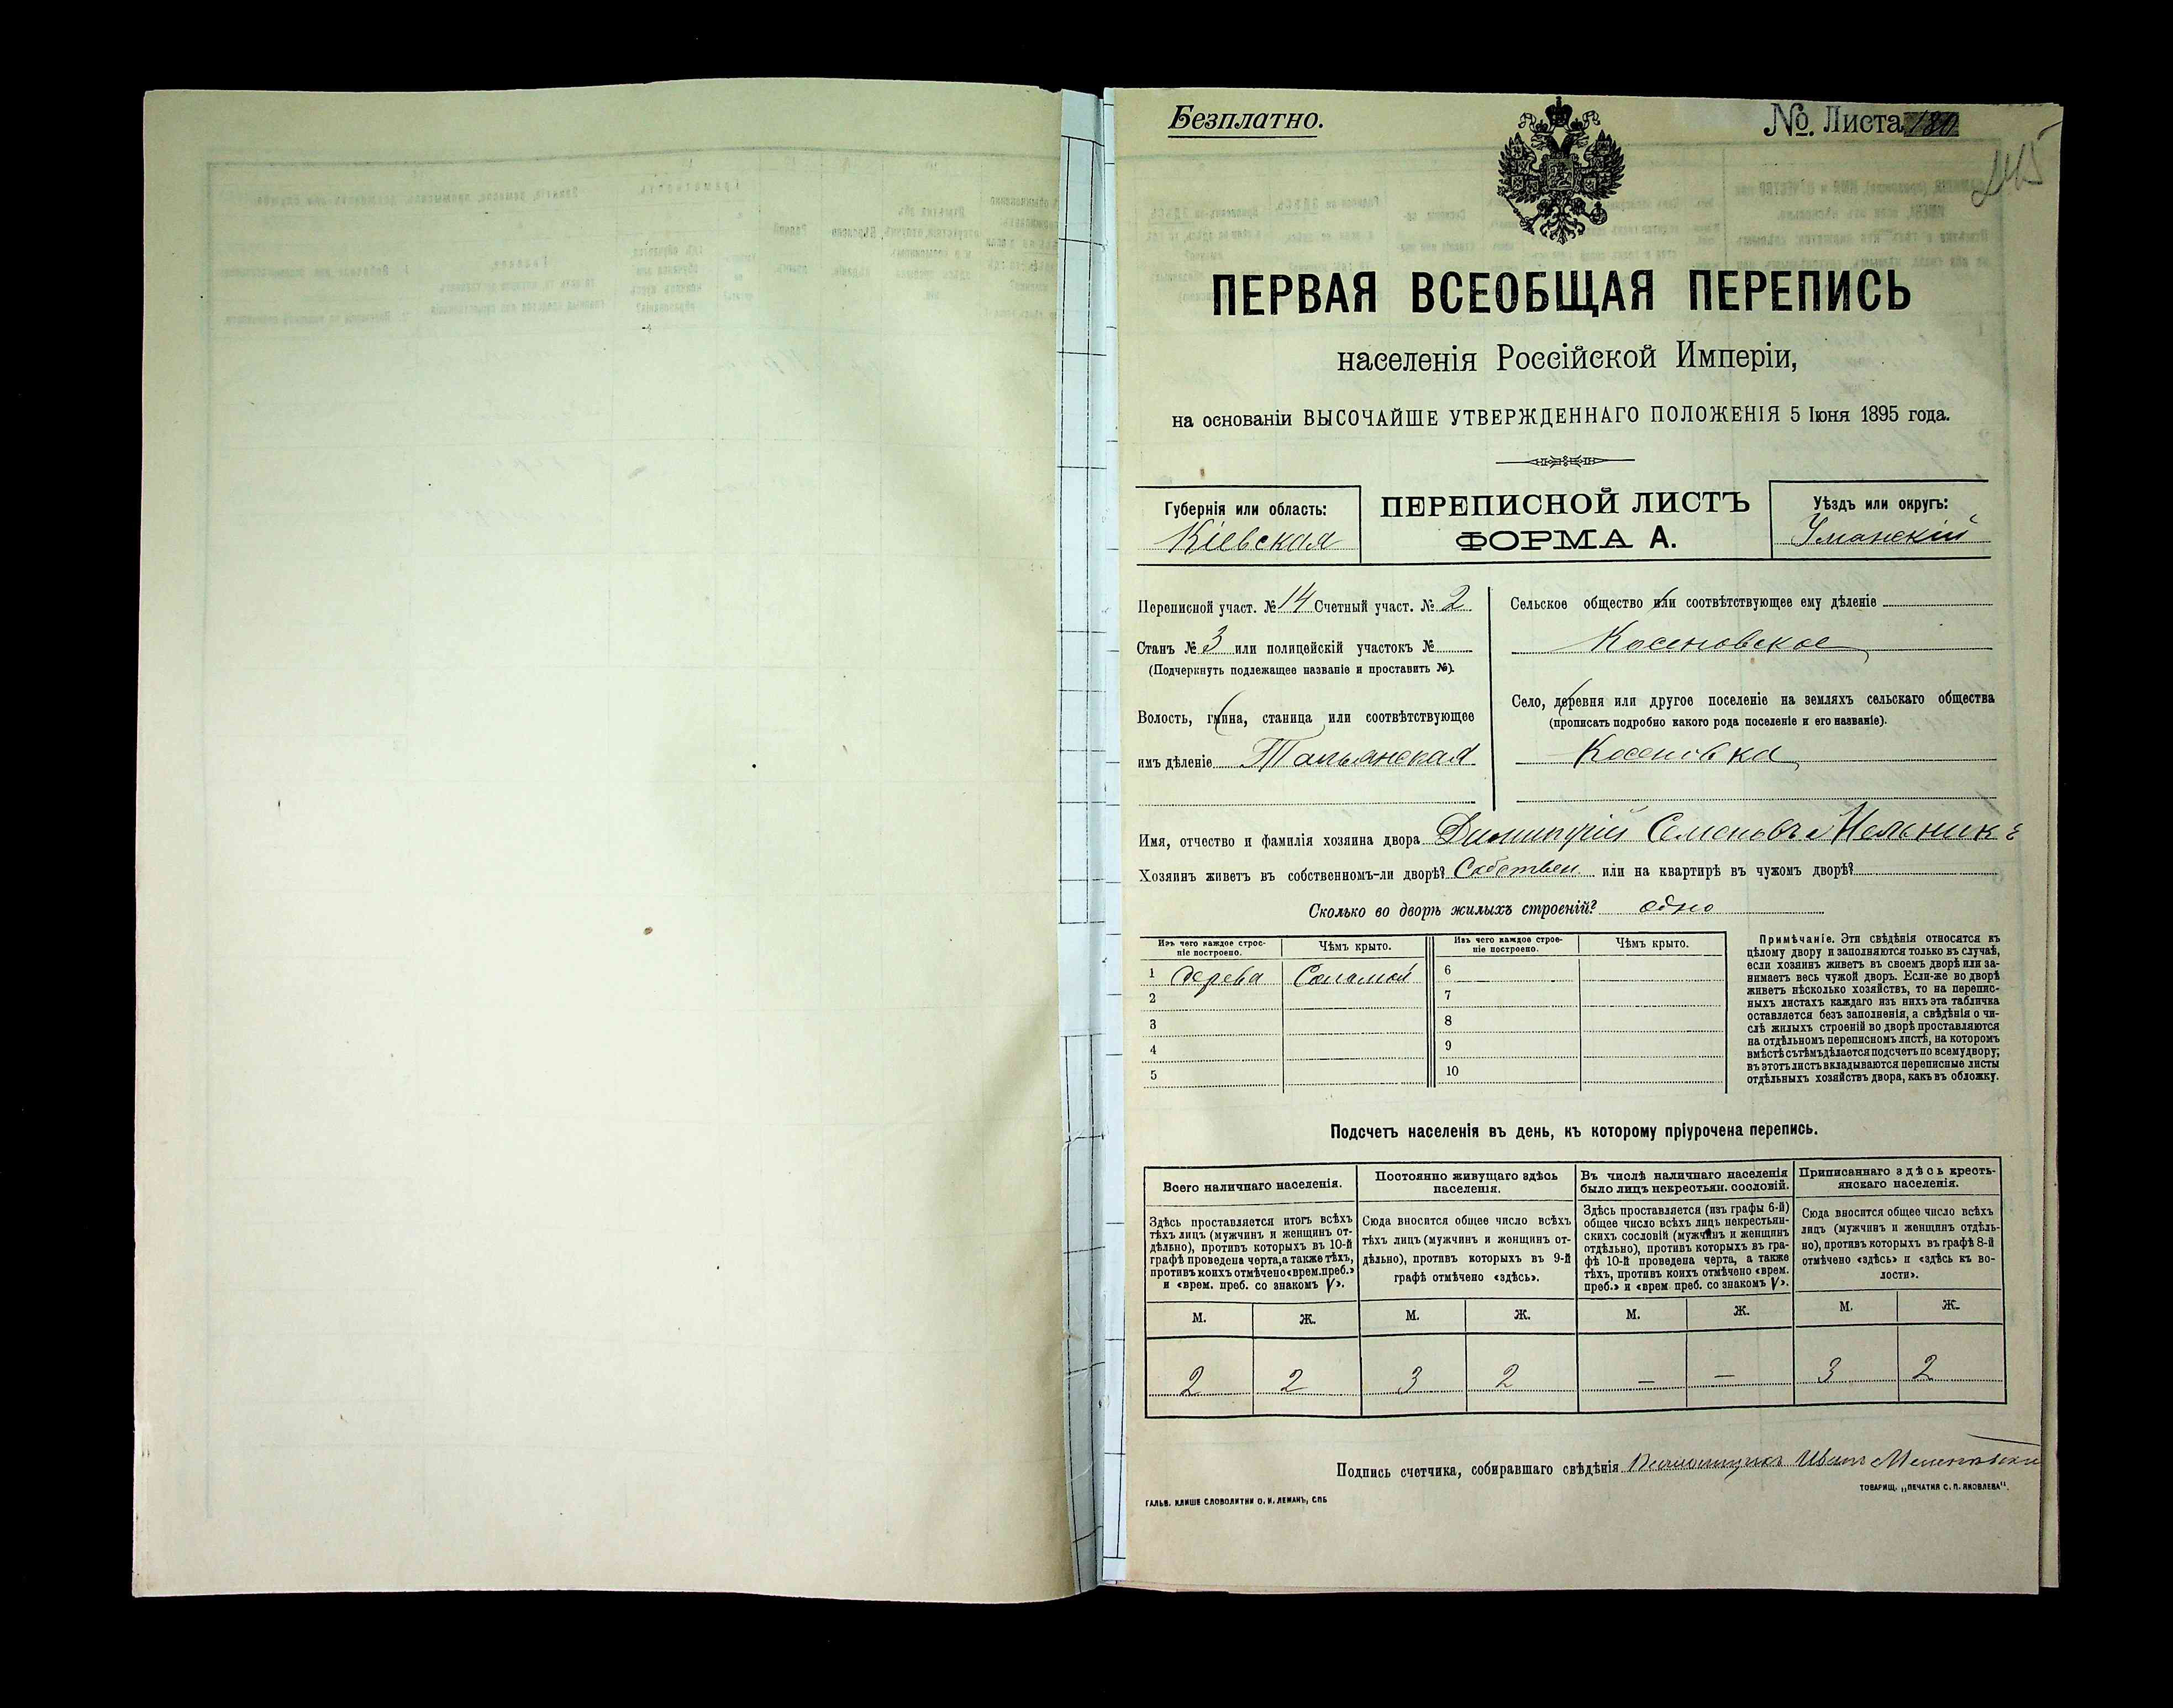 Безплатно.
№. Листа 180
215
ПЕРВАЯ ВСЕОБЩАЯ ПЕРЕПИСЬ
населенія Россійской Имперіи,
на основаніи ВЫСОЧАЙШЕ УТВЕРЖДЕННАГО ПОЛОЖЕНІЯ 5 Іюня 1895 года.
Губернія или область:
Кіевская
ПЕРЕПИСНОЙ ЛИСТЪ
ФОРМА А.
Уѣздъ или округъ:
Уманскій
Переписной участ. № 14 Счетный участ. № 2
Станъ № 3 или полицейскій участокъ №
(Подчеркнуть подлежащее названіе и проставить №).
Волость, гмина, станица или соотвѣтствующее
имъ дѣленіе Тальянская
Сельское общество или соотвѣтствующее ему дѣленіе
Косеновское
Село, деревня или другое поселеніе на земляхъ сельскаго общества
(прописать подробно какого рода поселеніе и его названіе).
Косеновка
Имя, отчество и фамилія хозяина двора Димитрій Семеновъ Мельникъ
Хозяинъ живетъ въ собственномъ-ли дворѣ? Собствен. или на квартирѣ въ чужомъ дворѣ?
Сколько во дворѣ жилыхъ строеній? одно
Изъ чего каждое строе-
ніе построено.
Чѣмъ крыто.
Изъ чего каждое строе-
ніе построено.
Чѣмъ крыто.
1 дерева Соломой 6
2 7
3 8
4 9
5 10
Примѣчаніе. Эти свѣдѣнія относятся къ
цѣлому двору и заполняются только въ случаѣ,
если хозяинъ живетъ въ своемъ дворѣ или за-
нимаетъ весь чужой дворъ. Если-же во дворѣ
живетъ нѣсколько хозяйствъ, то на перепис-
ныхъ листахъ каждаго изъ нихъ эта табличка
оставляется безъ заполненія, а свѣдѣнія о чи-
слѣ жилыхъ строеній во дворѣ проставляются
на отдѣльномъ переписномъ листѣ, на которомъ
вмѣстѣ съ тѣмъ дѣлается подсчетъ по всему двору;
въ этотъ листъ вкладываются переписные листы
отдѣльныхъ хозяйствъ двора, какъ въ обложку.
Подсчетъ населенія въ день, къ которому пріурочена перепись.
Всего наличнаго населенія.
Здѣсь проставляется итогъ всѣхъ
тѣхъ лицъ (мужчинъ и женщинъ от-
дѣльно), противъ которыхъ въ 10-й
графѣ проведена черта, а также тѣхъ,
противъ коихъ отмѣчено «врем. преб.»
и «врем. преб. со знакомъ V».
М. Ж.
2 2
Постоянно живущаго здѣсь
населенія.
Сюда вносится общее число всѣхъ
тѣхъ лицъ (мужчинъ и женщинъ от-
дѣльно), противъ которыхъ въ 9-й
графѣ отмѣчено «здѣсь».
М. Ж.
3 2
Въ числѣ наличнаго населенія
было лицъ некрестьян. сословій.
Здѣсь проставляется (изъ графы 6-й)
общее число всѣхъ лицъ некрестьян-
скихъ сословій (мужчинъ и женщинъ
отдѣльно), противъ которыхъ въ гра-
фѣ 10-й проведена черта, а также
тѣхъ, противъ коихъ отмѣчено «врем.
преб.» и «врем. преб. со знакомъ V».
М. Ж.
— —
Приписаннаго здѣсь кресть-
янскаго населенія.
Сюда вносится общее число всѣхъ
лицъ (мужчинъ и женщинъ отдѣль-
но), противъ которыхъ въ графѣ 8-й
отмѣчено «здѣсь» и «здѣсь въ во-
лости».
М. Ж.
3 2
Подпись счетчика, собиравшаго свѣдѣнія Иванъ
ГАЛЬВ. КЛИШЕ СЛОВОЛИТНИ О. И. ЛЕМАНЪ, СПБ
ТОВАРИЩ. „ПЕЧАТНЯ С. П. ЯКОВЛЕВА".